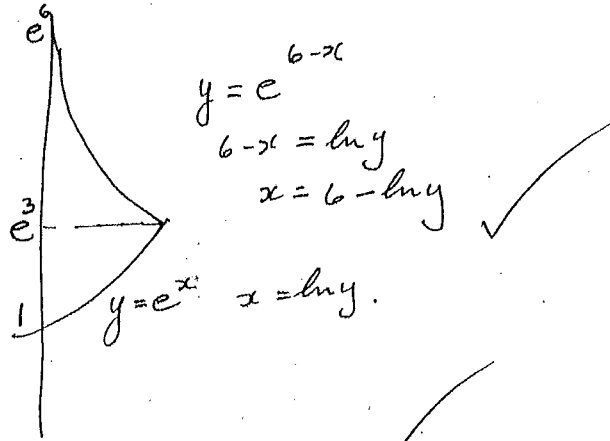 e⁶
y = e^(6-x)
6-x = ln y
x = 6 - ln y
e³
1
y = e^x x = ln y.